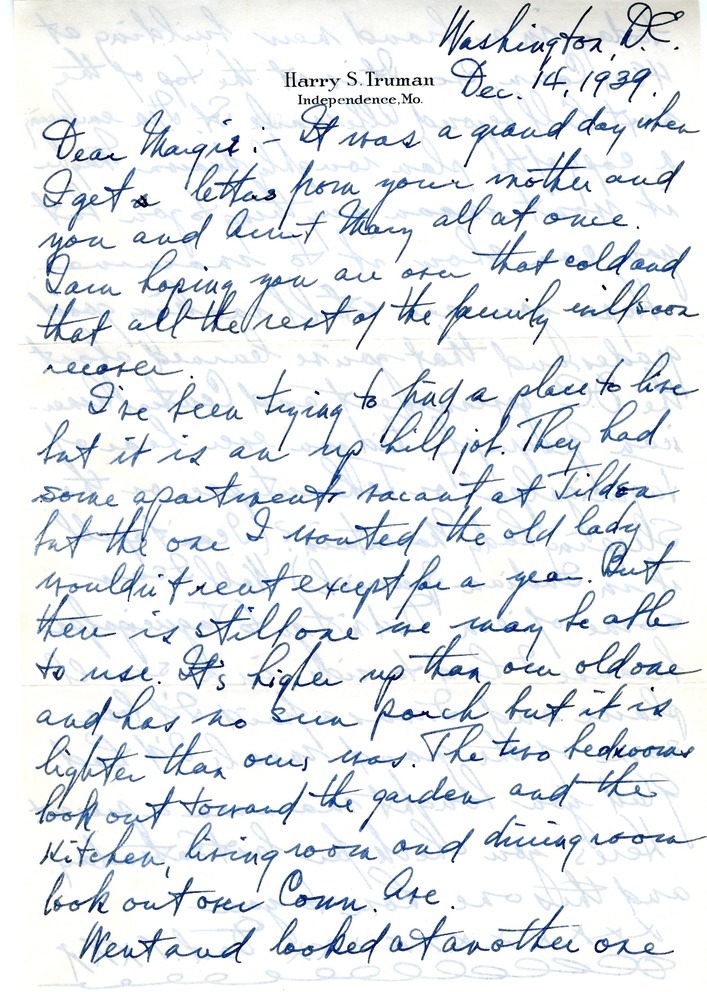 Washington, D.C.
Harry S. Truman
Independence, Mo.
Dec. 14, 1939.
Dear Margie:- It was a grand day when
I get letters from your mother and
you and Aunt Mary all at once.
I am hoping you are over that cold and
that all the rest of the family will soon
recover.
I've been trying to find a place to live
but it is an up hill job. They had
some apartments vacant at Tilden
but the one I wanted the old lady
wouldn't rent except for a year. But
there is still one we may be able
to use. It's higher up than our old one
and has no sun porch but it is
lighter than ours was. The two bedrooms
look out toward the garden and the
kitchen, living room and dining room
look out over Conn. Ave.
Went and looked at another one